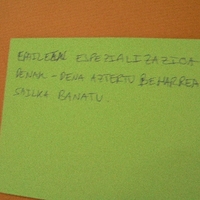 EPAILEEN ESPEZIALIZAZIOA
DENAK - DENA AZTERTU BEHARREA
SAILKA BANATU.